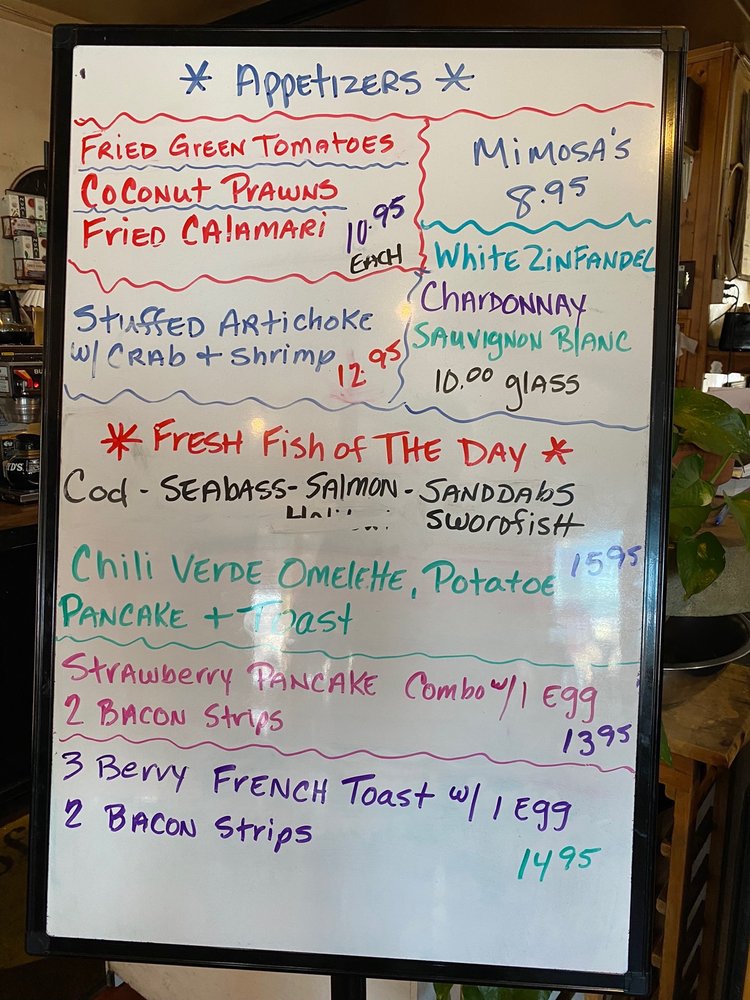 * Appetizers *
Fried Green Tomatoes
Coconut Prawns
Fried Calamari 10.95
Each
Mimosa's
8.95
White Zinfandel
Chardonnay
Sauvignon Blanc
10.00 glass
Stuffed Artichoke
w/ Crab + Shrimp 12.95
* Fresh Fish of The Day *
Cod - Seabass - Salmon - Sanddabs
Swordfish
Chili Verde Omelette, Potatoe 1595
Pancake + Toast
Strawberry Pancake Combo w/ 1 Egg
2 Bacon Strips 1395
3 Berry French Toast w/ 1 Egg
2 Bacon Strips
1495